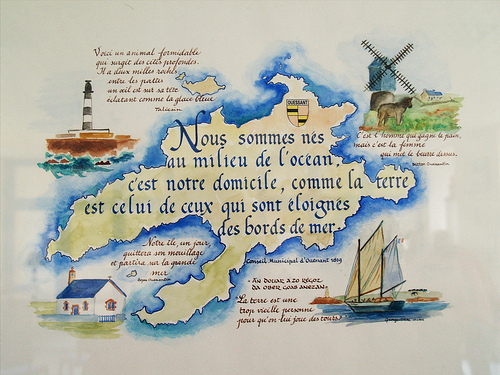 Voici un animal formidable
qui surgit des cités profondes.
Il a deux milles rochs
entre les pattes
un œil est sur sa tête
éclatant comme la glace bleue
Taliesin
OUESSANT
C'est l'homme qui gagne le pain,
mais c'est la femme
qui met le beurre dessus.
Nous sommes nés
au milieu de l'océan,
c'est notre domicile, comme la terre
est celui de ceux qui sont éloignés
des bords de mer.
Conseil Municipal d'Ouessant
Notre île, un jour,
quittera son mouillage
et partira sur la grande
mer
"AN DOUAR A ZO REGOZ
DA OBER GOAP ANEZAN"
"La terre est une
trop vieille personne
pour qu'on lui joue des tours"